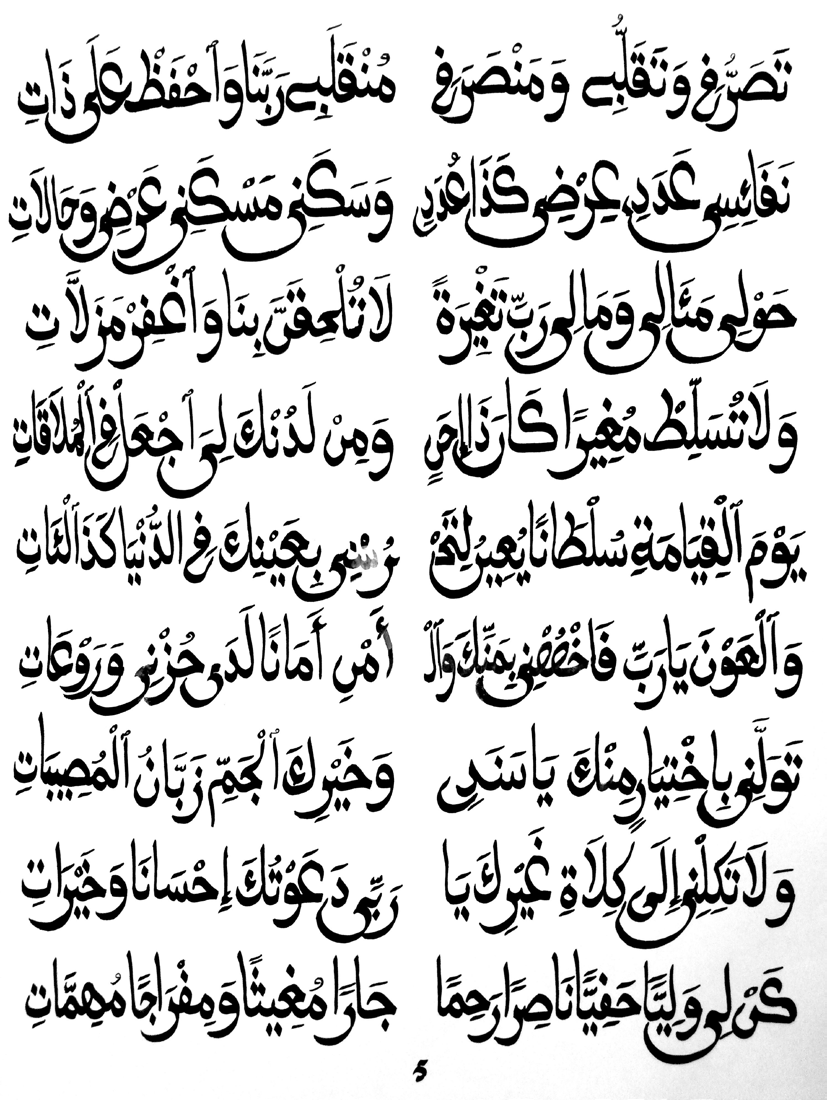 تَصَرُّفِي وَتَقَلُّبِي وَمَنْصَرِفِي مُنْقَلَبِي رَبَّنَا وَٱحْفَظْ عَلَى ذَاتِ
نَفَائِسِي عَدَدِي عِرْضِي كَذَا عُدَدِي وَسَكَنِي مَسْكَنِي عَرَضِي وَحَالَاتِ
حَوْلِي مَئَالِي وَمَالِي رَبِّ تَغْيِرَةً لَا تُلْحِقَنَّ بِنَا وَٱغْفِرْ مَزَلَّاتِ
وَلَا تُسَلِّطْ مُغِيرًا كَارَذَا وَمِنْ لَدُنْكَ لِيَ ٱجْعَلْ فِي ٱلْمُلَاقَاتِ
يَوْمَ ٱلْقِيَامَةِ سُلْطَانًا يُعِيرُ لِتَحْـ رُسْنِي بِعَيْنِكَ فِي الدُّنْيَا كَذَ ٱلْئَاتِ
وَٱلْعَوْنَ يَا رَبِّ فَاخْصُصْنِي بِمَنِّكَ وَٱلْـ أَمْنِ أَمَانًا لَدَى حُزْنِي وَرَوْعَاتِ
تَوَلَّنِي بِاخْتِيَارٍ مِنْكَ يَا سَنَدِي وَخَيْرِكَ ٱلْجَمِّ زَبَّانُ ٱلْمُصِيبَاتِ
وَلَا تَكِلْنِي إِلَى كِلَاةِ غَيْرِكَ يَا رَبِّي دَعَوْتُكَ إِحْسَانًا وَخَيْرَاتِ
كُنْ لِي وَلِيًّا حَفِيًّا نَاصِرًا رَحِمًا جَارًا مُغِيثًا وَمِفْرَاجًا مُهِمَّاتِ
5